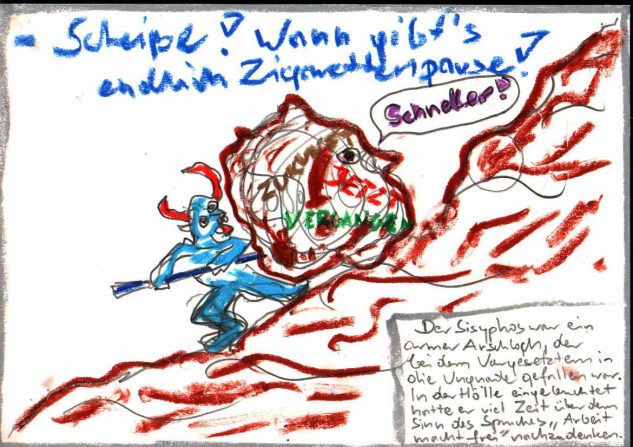 - Scheiße! Wann gibt's
endlich Zigarettenpause!
Schneller!
ZUKUNFT
JETZT
VERGANGEN
Der Sisyphos war ein
armer Arschloch, der
bei dem Vorgesetztern in
die Ungnade gefallen war.
In der Hölle eingeleuchtet
hatte er viel Zeit über dem
Sinn des Spruches „Arbeit
macht frei" nachzudenken.